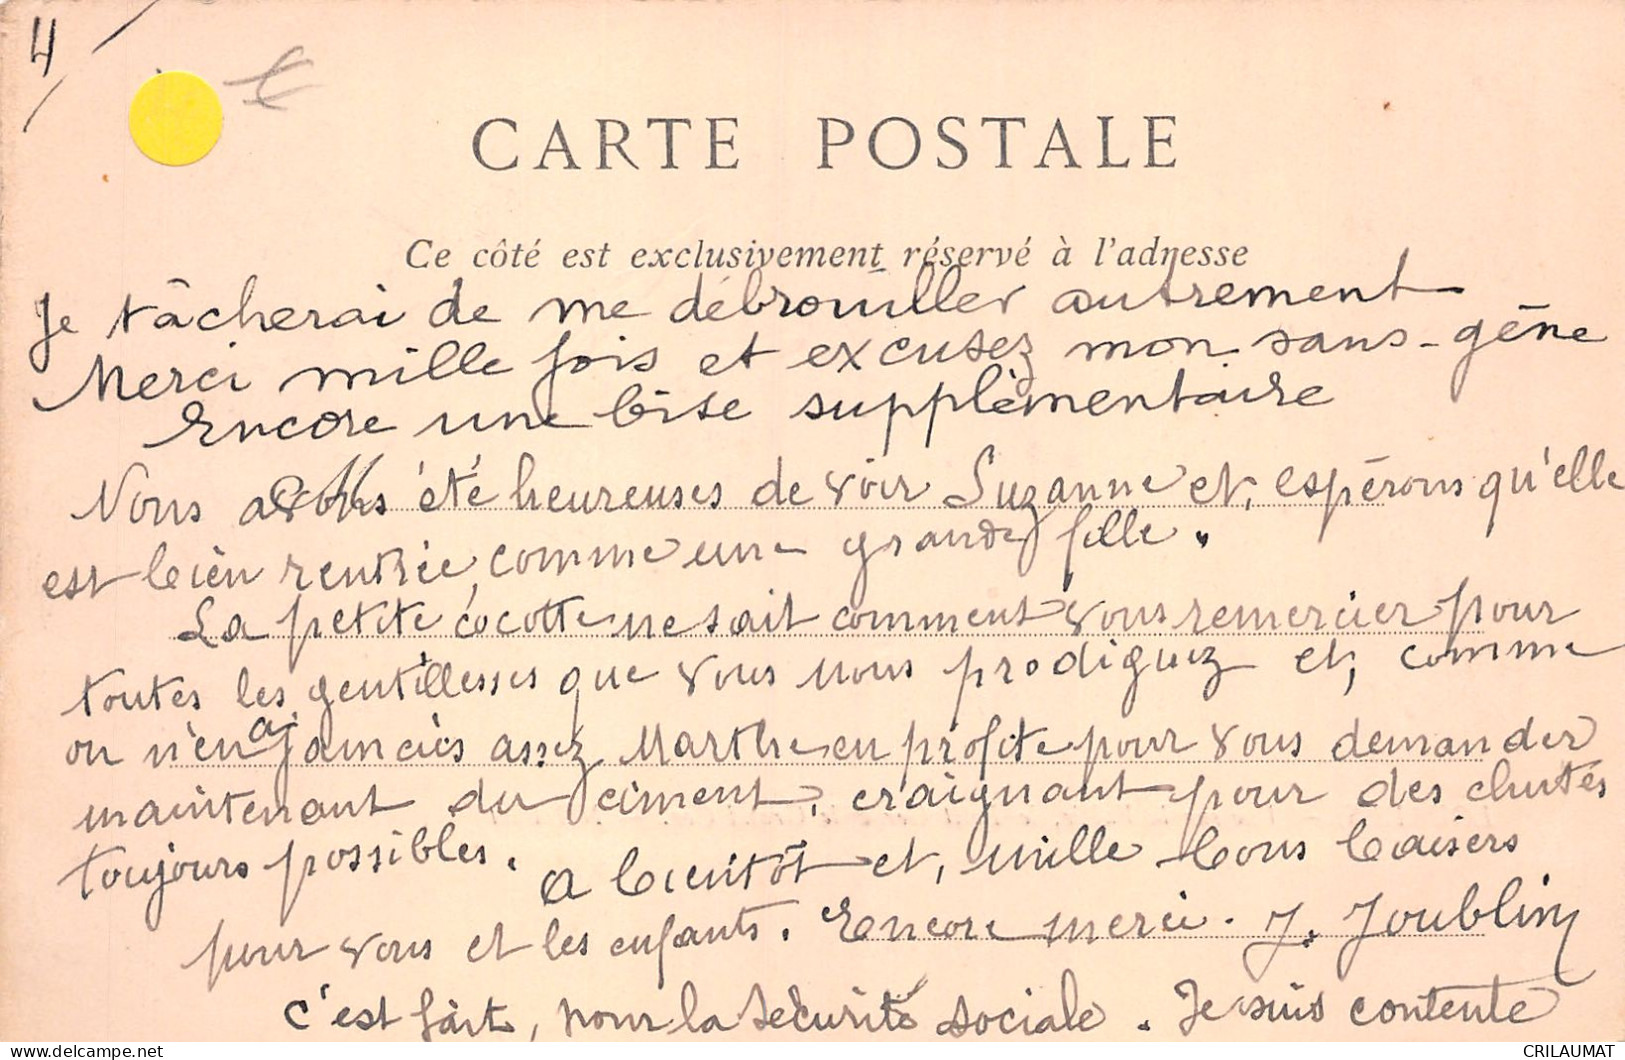 4
CARTE POSTALE
Ce côté est exclusivement réservé à l'adresse
Je tâcherai de me débrouiller autrement
Merci mille fois et excusez mon sans-gêne
Encore une bise supplémentaire
Nous avons été heureuses de voir Suzanne et, espérons qu'elle
est bien rentrée, comme une grande fille.
La petite cocotte ne sait comment vous remercier pour
toutes les gentillesses que vous nous prodiguez et, comme
on n'en a jamais assez Marthe en profite pour vous demander
maintenant du ciment, craignant pour des chutes
toujours possibles. A bientôt et, mille bons baisers
pour vous et les enfants. Encore merci. J. Joublin
c'est fait, pour la sécurité sociale. Je suis contente
CRILAUMAT